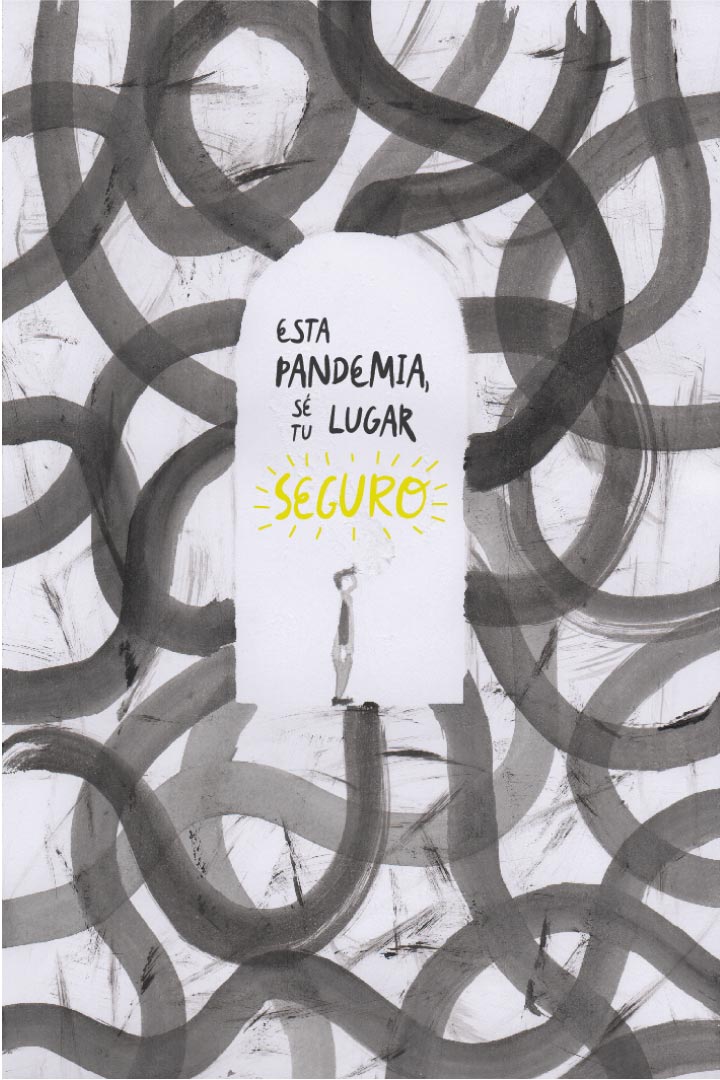 ESTA
PANDEMIA,
SÉ TU LUGAR
SEGURO